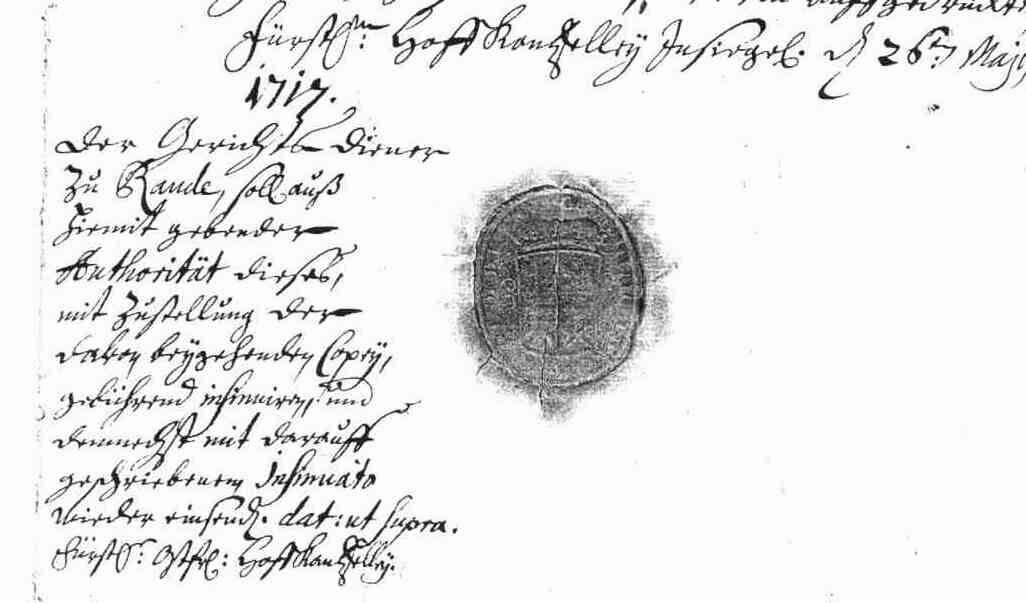 auffgedrückte
Fürstl: Hoff Kantzelley Insiegel. d 26t. Maij
1717.
Der Gerichts diener
Zu Raude, soll auß
hiemit gebender
Authorität dieses,
mit Zustellung der
davon beygehenden Copey,
gebührend insinuiren, und
demnechst mit darauff
geschriebenem Insinuato
wieder einsend. dat: ut supra.
Fürstl: Ostfr: Hoff Kantzelley.